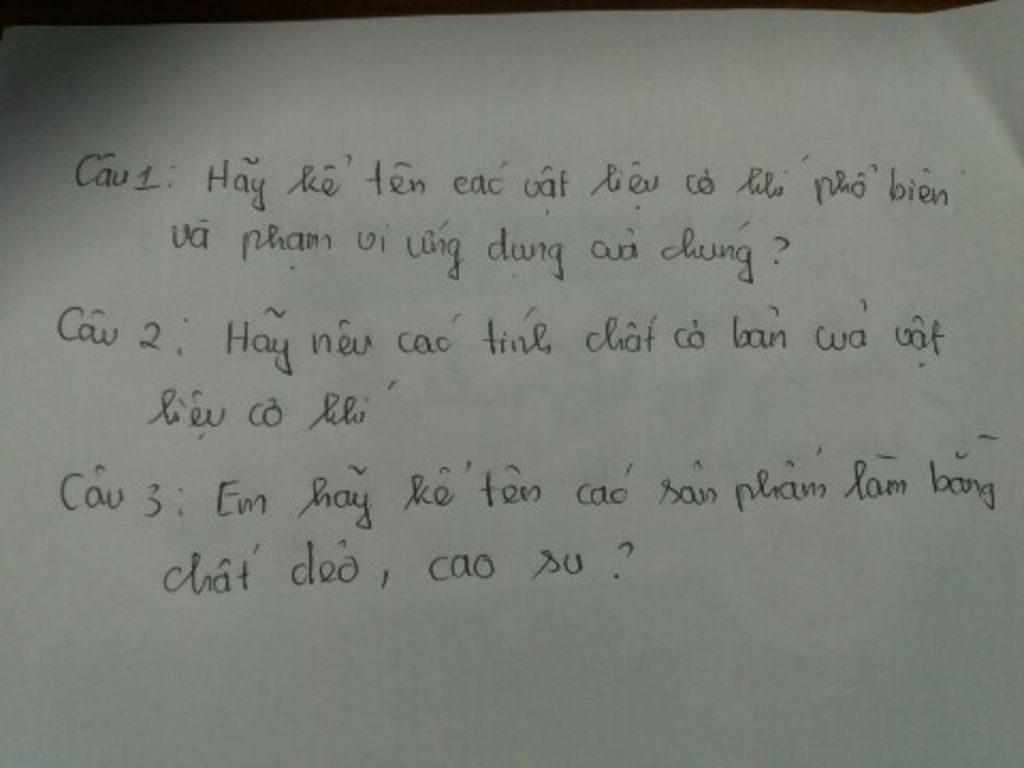 Câu 1: Hãy kể tên các vật liệu cơ khí phổ biến
và phạm vi ứng dụng của chúng?
Câu 2: Hãy nêu các tính chất cơ bản của vật
liệu cơ khí
Câu 3: Em hãy kể tên các sản phẩm làm bằng
chất dẻo, cao su?